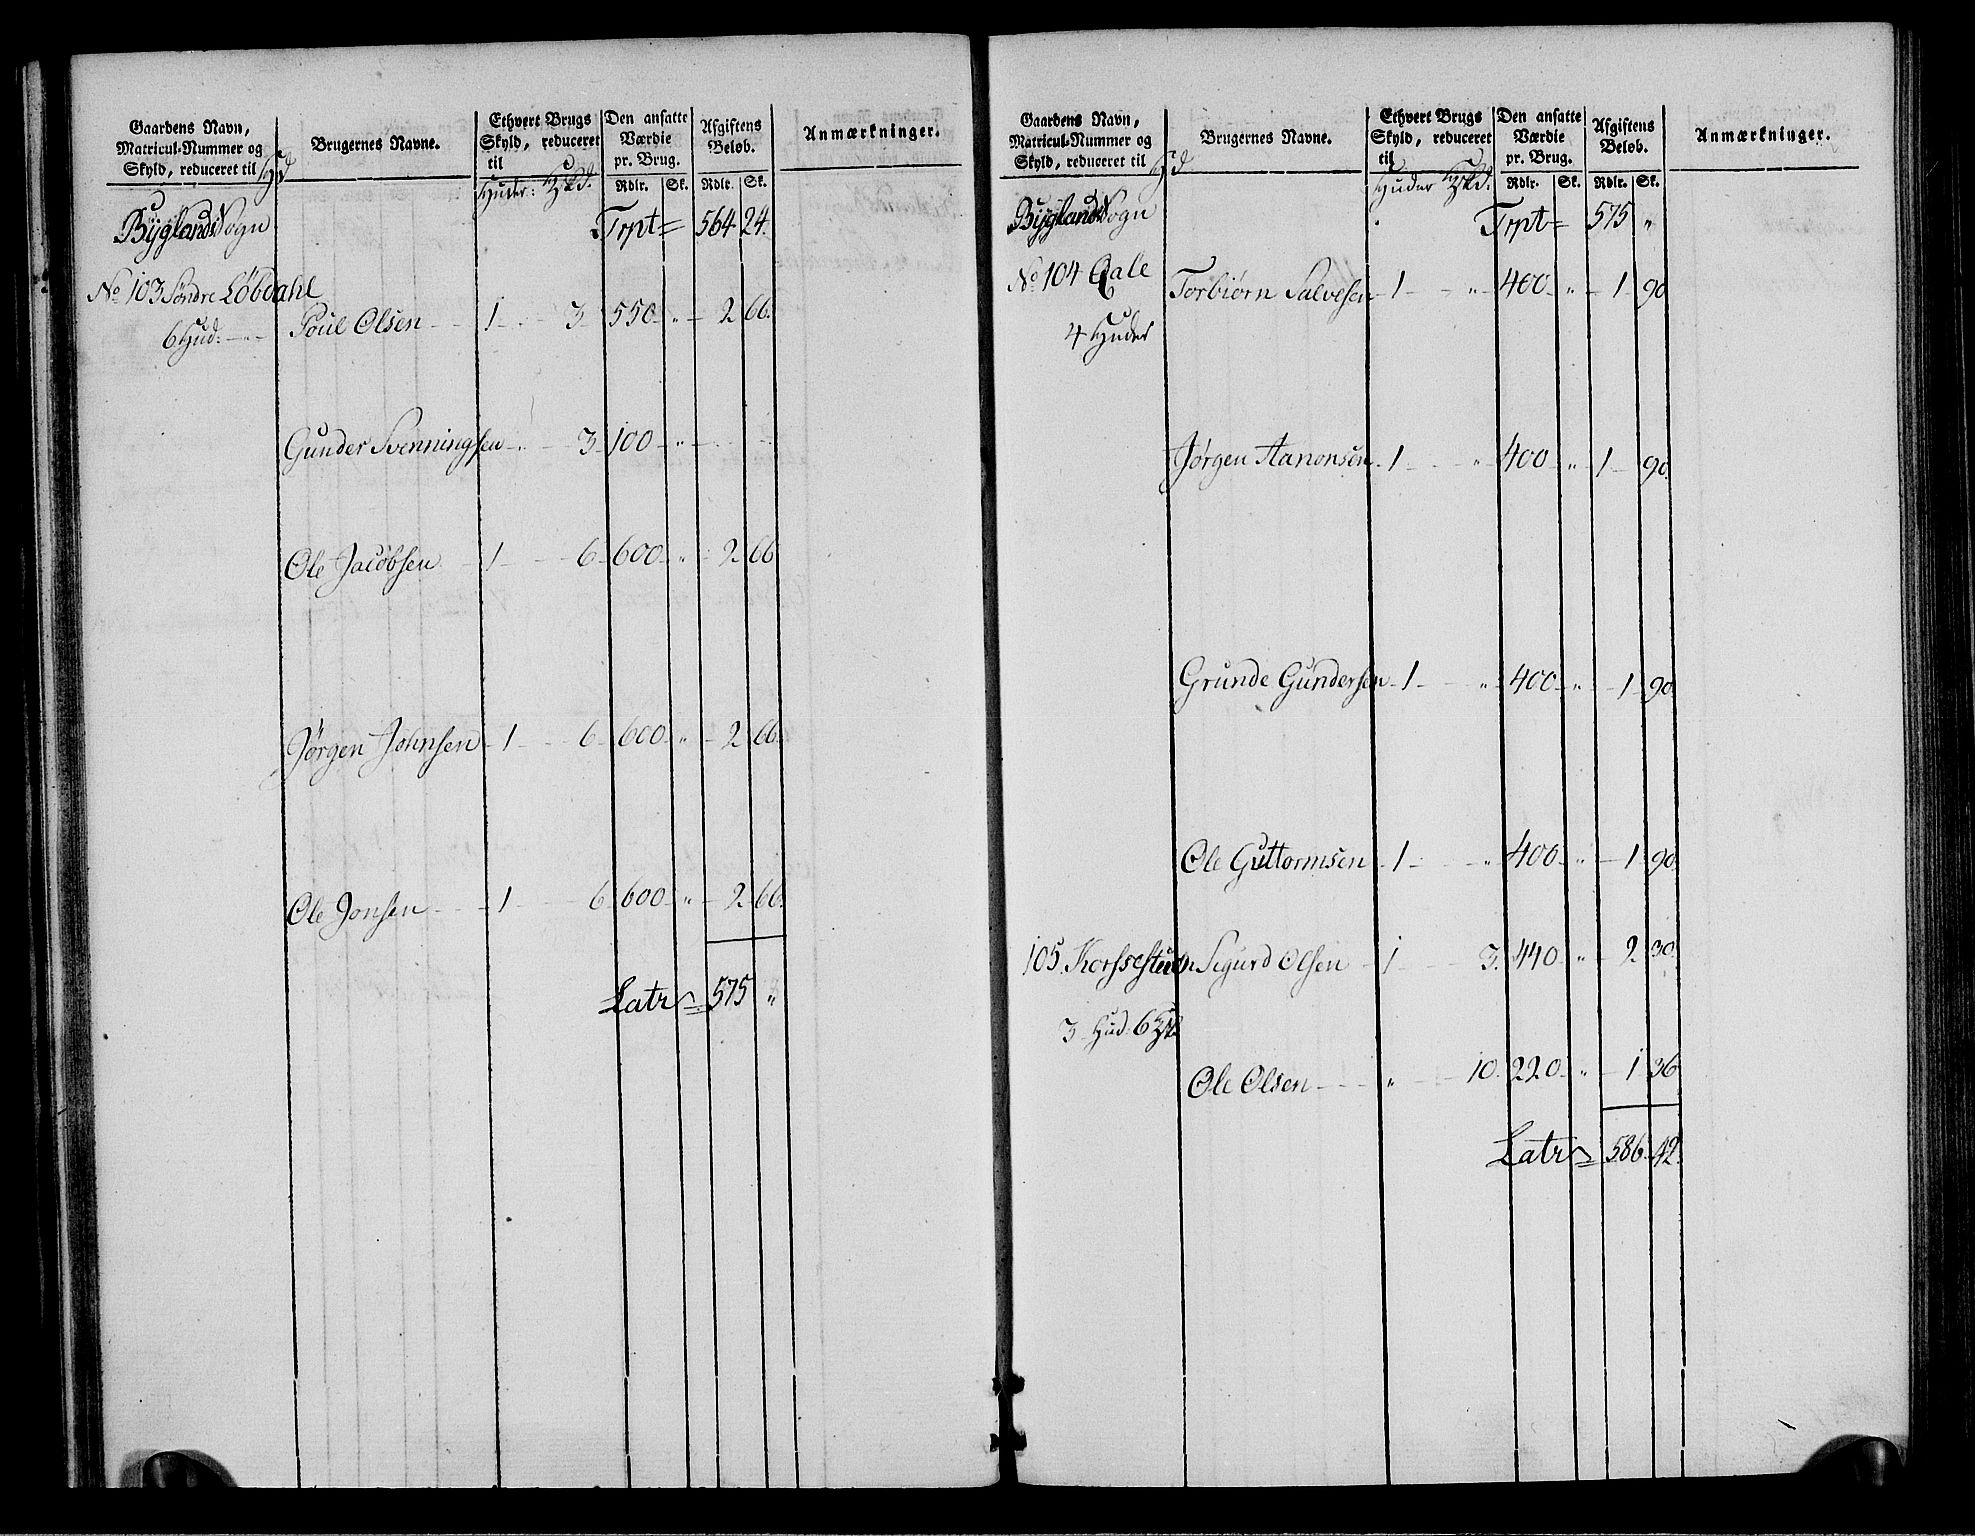 Gaardens Navn, Matricul-Nummer og Skyld, reduceret til | Brugernes Navne. | Ethvert Brugs Skyld, reduceret til | Den ansatte Værdie pr. Brug. | Afgiftens Beløb. | Anmærkninger.
Huder: | Rdlr. | Sk. | Rdlr. | Sk.
Byglands Sogn Trpt = 564 24
No 103 Søndre Løbdahl
6 Hud: Poul Olsen 1 3 550 " 2 66
Gunder Svenningsen 3 100 "
Ole Jacobsen 1 6 600 " 2 66
Jørgen Johnsen 1 6 600 " 2 66
Ole Jonsen 1 6 600 " 2 66
Latr = 575 "
Gaardens Navn, Matricul-Nummer og Skyld, reduceret til | Brugernes Navne. | Ethvert Brugs Skyld, reduceret til | Den ansatte Værdie pr. Brug. | Afgiftens Beløb. | Anmærkninger.
Huder | Rdlr. | Sk. | Rdlr. | Sk.
Byglands Sogn Trpt = 575 "
No 104 Torbiørn Salvesen 1 " 400 " 1 90
4 Huder
Jørgen Aanonsen 1 " 400 " 1 90
Grunde Gundersen 1 " 400 " 1 90
Ole Guttormsen 1 " 400 " 1 90
105. Sigurd Olsen 1 3 440 " 2 30
3 Hud: 6
Ole Olsen " 10 220 " 1 36
Latr = 586 42